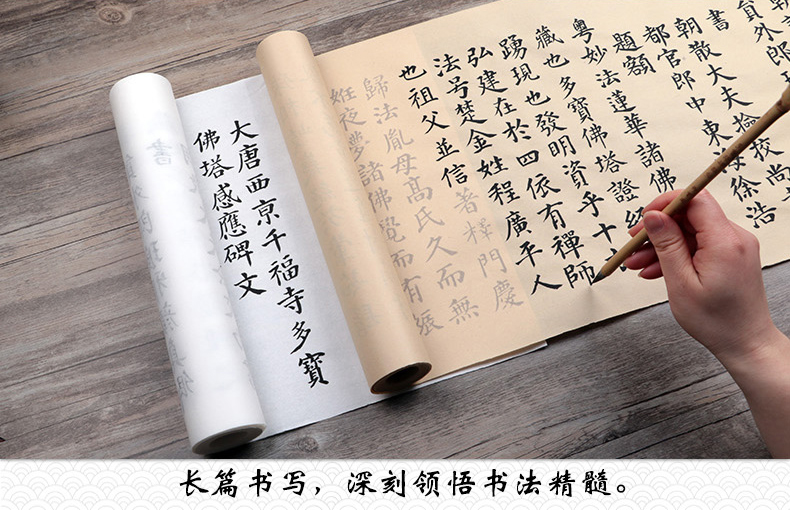 員外郎
書
朝散大夫撿挍尚
都官郎中東海徐浩
題額
粵妙法蓮華諸佛
藏也多寶佛塔證經
踴現也發明資乎十
弘建在於四依有禪師
法号楚金姓程廣平人
也祖父並信著釋門慶
歸法胤母高氏久而無
姙夜夢諸佛覺而有娠
大唐西京千福寺多寶
佛塔感應碑文
长篇书写，深刻领悟书法精髓。